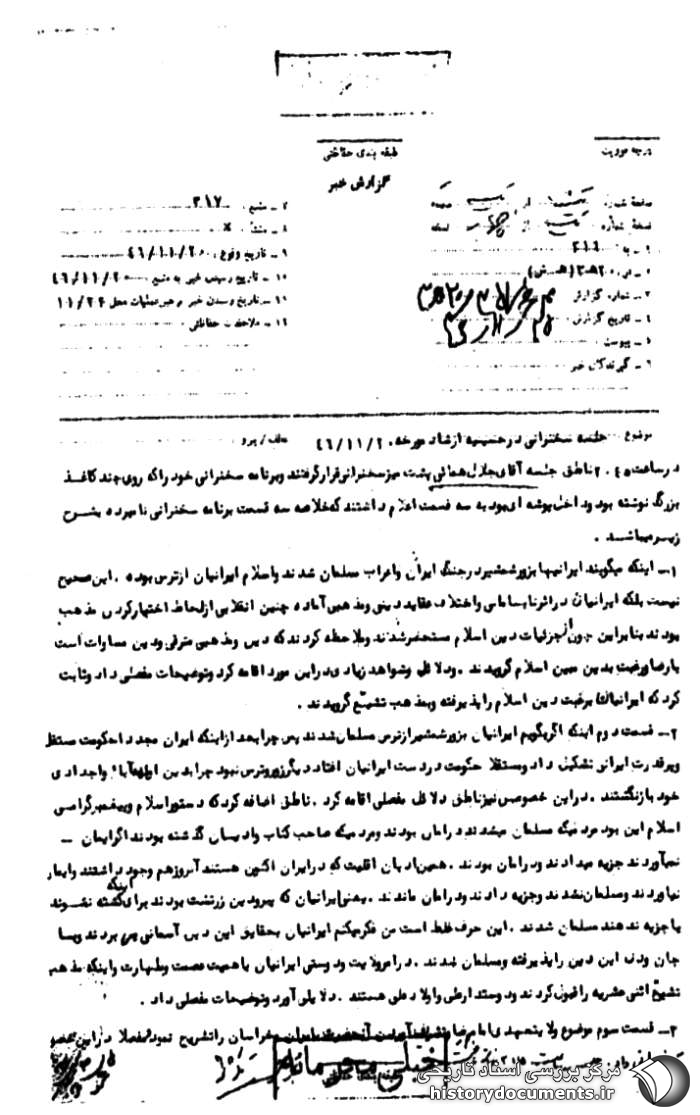 درجه فوریت
طبقه بندی حفاظتی
گزارش خبر
۷ - منبع ۳۱۷
۸ - منشاء x
۹ - تاریخ وقوع ۴۶/۱۱/۲۰
۱۰ - تاریخ رسیدن خبر به منبع ۴۶/۱۱/۲۰
۱۱ - تاریخ رسیدن خبر برهبر عملیات محل ۱۱/۲۴
۱۲ - ملاحظات حفاظتی
نسخه شماره از نسخه
۱ - به ۳۱۱
۲ - از ۲۰ ه ۳ (ه . ش)
۳ - شماره گزارش
۴ - تاریخ گزارش
۵ - پیوست
۶ - گیرندگان خبر
موضوع جلسه سخنرانی در حسینیه ارشاد مورخه ۴۶/۱۱/۲۰ عطف / پیرو
در ساعت ۲۰.۴۵ ناطق جلسه آقای جلال همائی پشت میز سخنرانی قرار گرفتند و برنامه سخنرانی خود را که روی چند کاغذ
بزرگ نوشته بود و داخل پوشه ای بود به سه قسمت اعلام داشتند که خلاصه سه قسمت برنامه سخنرانی نامبرده بشرح
زیر میباشد .
۱ـ اینکه میگویند ایرانیها بزور شمشیر در جنگ ایران و اعراب مسلمان شدند و اسلام ایرانیان از ترس بوده . این صحیح
نیست بلکه ایرانیان در اثر نابسامانی و اختلاف عقاید دینی و مذهبی آماده چنین انقلابی از لحاظ اختیار کردن مذهب
بودند بنابراین چون از جزئیات دین اسلام مستحضر شدند و ملاحظه کردند که دین و مذهبی مترقی و دین مساوات است
با رضا و رغبت بدین مبین اسلام گرویدند . و دلائل و شواهد زیادی در این مورد اقامه کرد و توضیحات مفصلی داد و ثابت
کرد که ایرانیان برغبت دین اسلام را پذیرفته و بمذهب تشیع گرویدند .
۲ـ قسمت دوم اینکه اگر بگویم ایرانیان بزور شمشیر از ترس مسلمان شدند پس چرا بعد از اینکه ایران مجددا حکومت مستقل
و پرقدرت ایرانی تشکیل داد و مستقلا حکومت در دست ایرانیان افتاد دیگر زور و ترس نبود چرا بدین اولیه آباء و اجدادی
خود بازنگشتند . در این خصوص نیز ناطق دلائل مفصلی اقامه کرد . ناطق اضافه کرد که دستور اسلام و پیغمبر گرامی
اسلام این بود مردمیکه مسلمان میشدند در امان بودند و مردمیکه صاحب کتاب و ادیان گذشته بودند اگر ایمان ـ
نمیآوردند جزیه میدادند و در امان بودند . همین ادیان اقلیت که در ایران اکنون هستند آنروز هم وجود داشتند و ایمان
نیاوردند و مسلمان نشدند و جزیه دادند و در امان ماندند . یعنی ایرانیان که پیرو دین زرتشت بودند برای اینکه کشته نشوند
یا جزیه ندهند مسلمان شدند . این حرف غلط است من فکر میکنم ایرانیان بحقایق این دین آسمانی پی بردند و با
جان و دل این دین را پذیرفته و مسلمان شدند . در امر ولایت و دوستی ایرانیان با اهمیت عصمت و طهارت و اینکه مذهب
تشیع اثنی عشریه را قبول کردند و دوستدار علی و اولاد علی هستند . دلایلی آورد و توضیحات مفصلی داد .
۳ـ قسمت سوم موضوع ولایتعهدی امام رضا و تشریف آوردن آنحضرت خراسان را تشریح نمود و مفصلا در این
خیلی محرمانه
طبقه بندی حفاظتی
مرکز بررسی اسناد تاریخی
historydocuments.ir